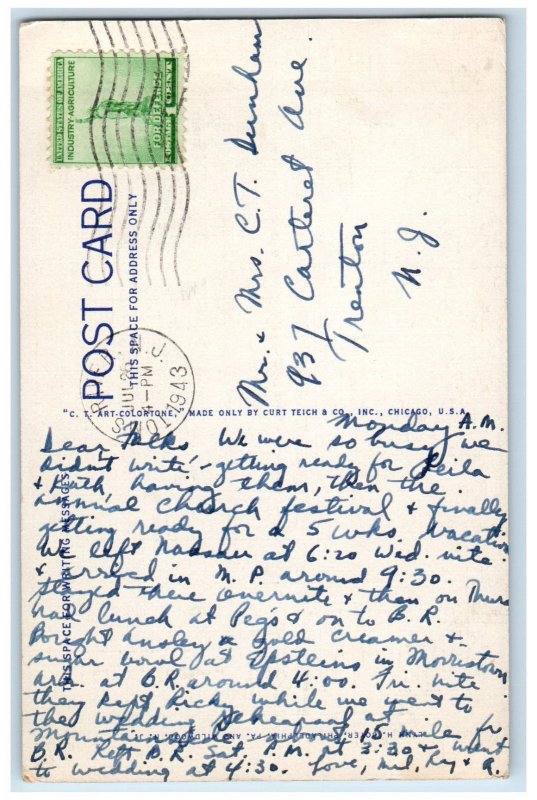 UNITED STATES OF AMERICA
INDUSTRY AGRICULTURE
FOR DEFENSE
POST CARD
THIS SPACE FOR ADDRESS ONLY
N.J.
JUL 26
4-PM
1943
Mr. & Mrs. C. T. Dunham
937 Carteret Ave.
Trenton
N. J.
"C. T. ART-COLORTONE," MADE ONLY BY CURT TEICH & CO., INC., CHICAGO, U.S.A.
THIS SPACE FOR WRITING MESSAGES
Monday A.M.
Dear Folks We were so busy we
didn't write - getting ready for Leila
& Ruth having them, then the
annual church festival & finally
getting ready for a 5 wks. vacation
We left Nassau at 6:20 Wed. nite
& arrived in M. P. around 9:30.
Stayed there overnite & then on Thurs
had lunch at Peg's & on to B. R.
Bought Ansley a gold creamer &
sugar bowl at Epsteins in Morristown
arr. at B.R. around 4:00. Fri. nite
they kept Ricky while we went to
the wedding rehearsal at
Mountain
B. R. Left B.R. Sat. P.M. at 3:30 & went
to wedding at 4:30. Love, Mel, Ry & R.